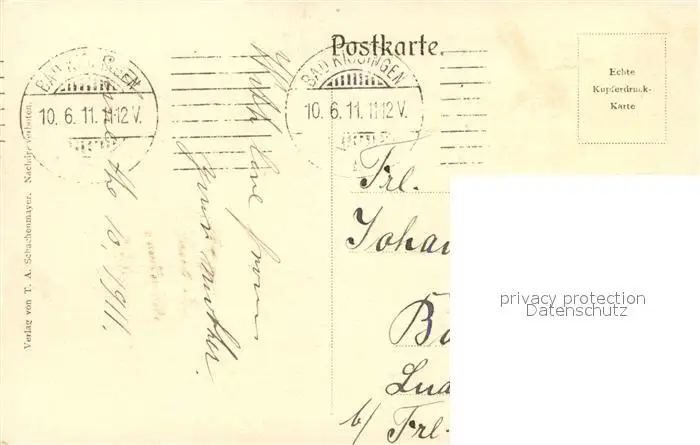 Postkarte.
Echte
Kupferdruck-
Karte
BAD KISSINGEN
10. 6. 11. 11-12 V.
BAD KISSINGEN
10. 6. 11. 11-12 V.
Verlag von T. A. Schachenmayer. Nachdr. verboten.
the 10, 1911.
With love from
your mother.
Frl.
Johan
Ba
Lud
b/ Frl.
privacy protection
Datenschutz